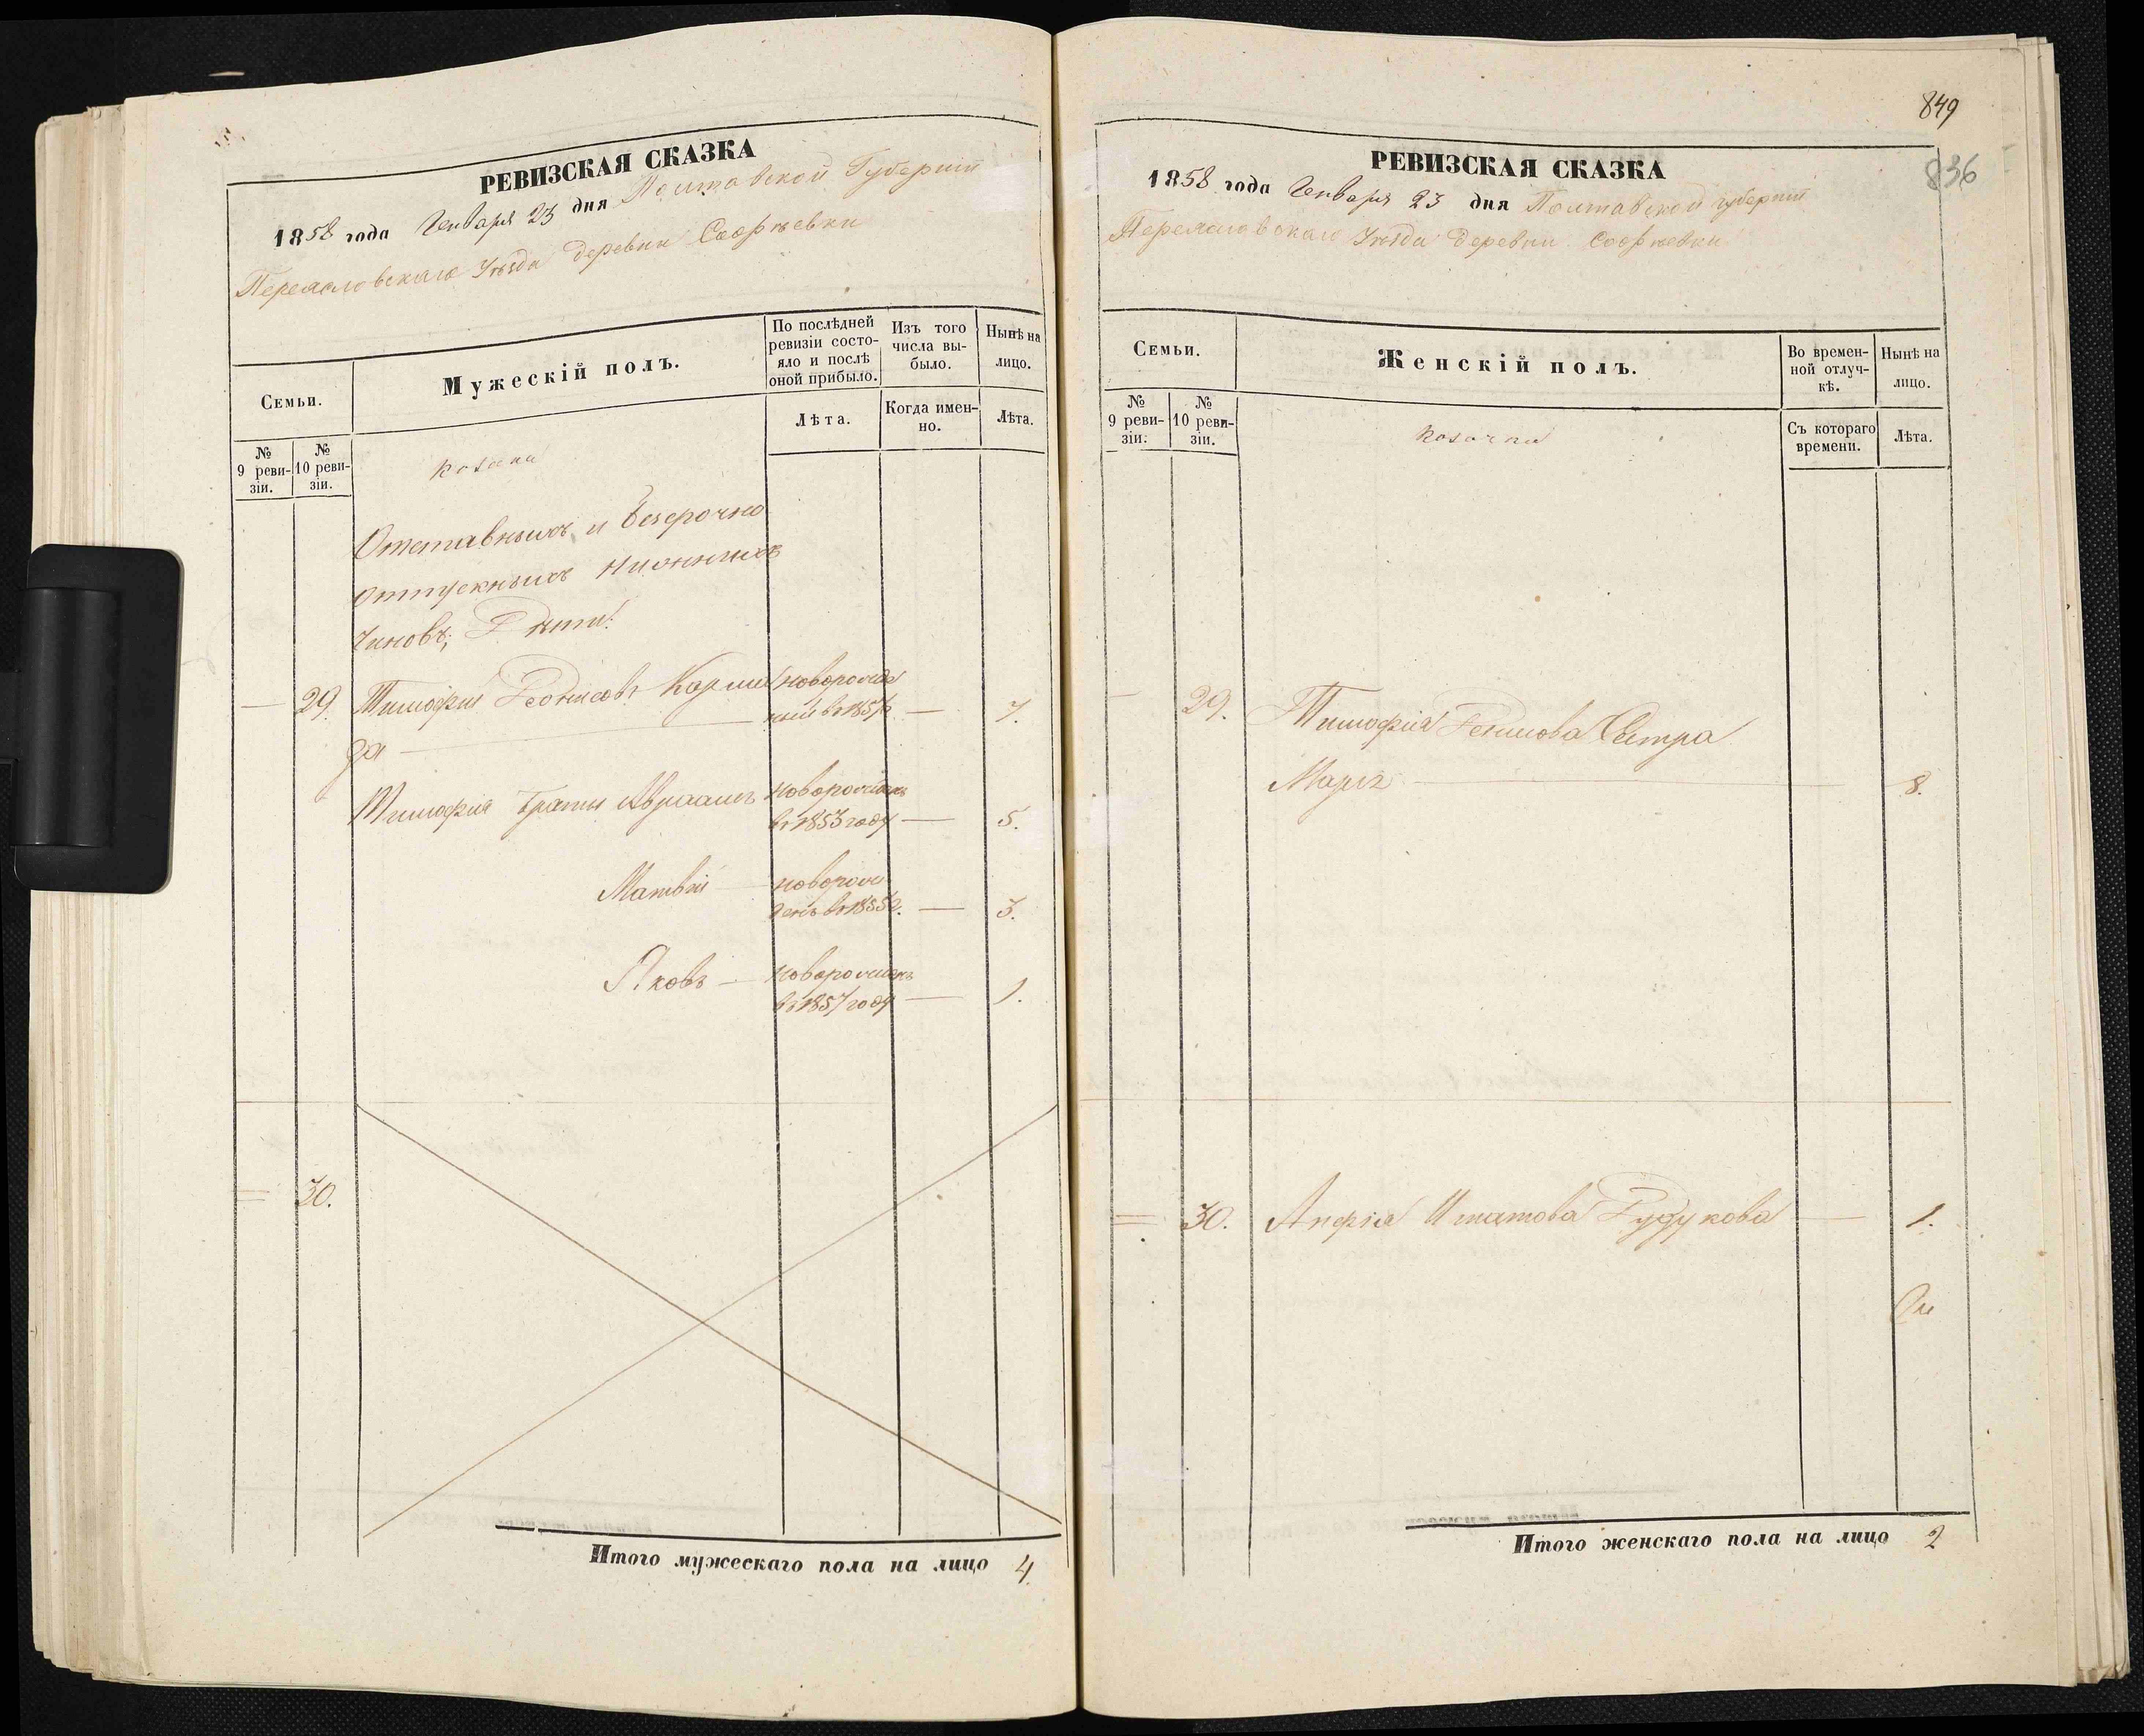 РЕВИЗСКАЯ СКАЗКА
1858 года Генваря 23 дня Полтавской Губернiи
Переясловскаго Уѣзда деревни Софіевки
Семьи.
№ 9 ревизіи.
№ 10 ревизіи.
Мужескій полъ.
По послѣдней ревизіи состояло и послѣ оной прибыло.
Лѣта.
Изъ того числа выбыло.
Когда именно.
Нынѣ на лицо.
Лѣта.
Козаки
Отставныхъ и безсрочно
отпускныхъ нижнихъ
чиновъ, Дѣти:
— 29. Тимофій Денисовъ новорожден
ный въ 185 — 7.
да —
Тимофія братья Авраамъ новорожденъ
въ 1853 году — 5.
Матвій — новорож
денъ въ 1855 г. — 3.
Яковъ — новорожденъ
въ 1857 году — 1.
= 30.
Итого мужескаго пола на лицо 4.
849
836
РЕВИЗСКАЯ СКАЗКА
1858 года Генваря 23 дня Полтавской губернiи
Переясловскаго Уѣзда деревни Софіевки
Семьи.
№ 9 ревизіи.
№ 10 ревизіи.
Женскій полъ.
Во временной отлучкѣ.
Съ котораго времени.
Нынѣ на лицо.
Лѣта.
Козачки
— 29. Тимофія Денисова Сестра
— 8.
= 30. — 1.
Итого женскаго пола на лицо 2